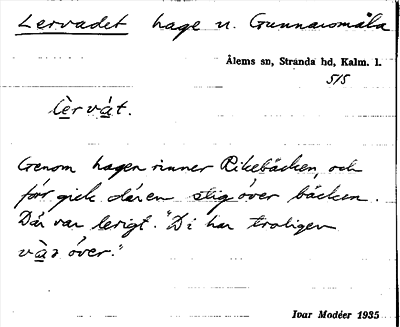 Lervadet hage u. Gunnarsmåla
Ålems sn, Stranda hd, Kalm. l.
5/5
lè̱rvá̱t.
Genom hagen rinner Rikebäcken, och
förr gick där en stig över bäcken.
Där var lerigt. "Di har troligen
va̱ȝ över."
Ivar Modéer 1935